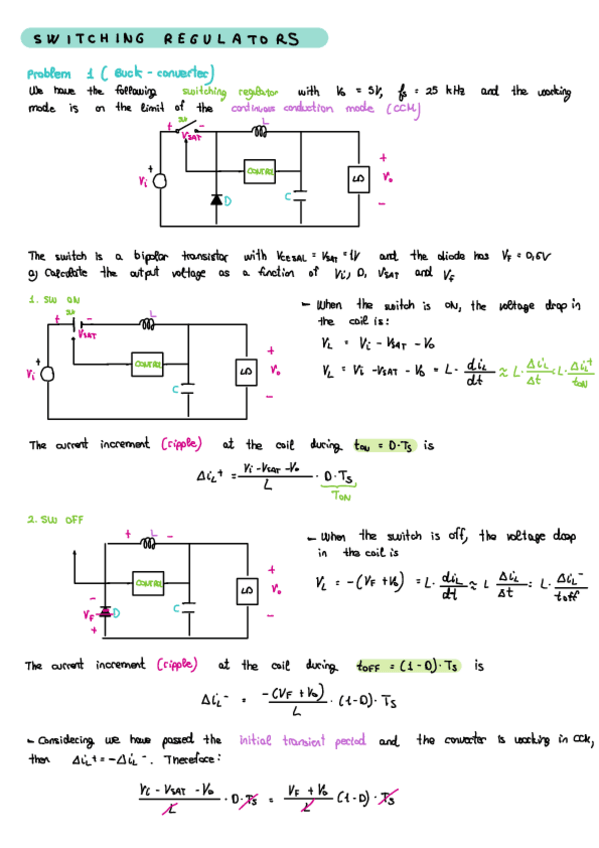 SWITCHING REGULATORS
Problem 1 (Buck-converter)
We have the following switching regulator with Vo = 5V, fs = 25 kHz and the working
mode is on the limit of the continuous conduction mode (CCM)
SW
+ - L
VSAT
+
Vi
CONTROL
D
C
+
Vo
-
The switch is a bipolar transistor with VCESAL = VSAT = 1V and the diode has VF = 0,6V
a) Calculate the output voltage as a function of Vi, D, VSAT and VF
1. SW ON
SW
+ - L
VSAT
+
Vi
CONTROL
C
+
Vo
-
- When the switch is ON, the voltage drop in
the coil is:
VL = Vi - VSAT - Vo
VL = Vi - VSAT - Vo = L · diL/dt ≈ L · ΔiL/Δt = L · ΔiL+/tON
The current increment (ripple) at the coil during tON = D·TS is
ΔiL+ = (Vi - VSAT - Vo)/L · D·TS
TON
2. SW OFF
+ L -
CONTROL
-
VF D
+
C
+
Vo
-
- When the switch is off, the voltage drop
in the coil is
VL = -(VF + Vo) = L · diL/dt ≈ L ΔiL/Δt = L · ΔiL-/toff
The current increment (ripple) at the coil during tOFF = (1-D)·TS is
ΔiL- = -(VF + Vo)/L · (1-D)·TS
- Considering we have passed the initial transient period and the converter is working in CCM,
then ΔiL+ = -ΔiL-. Therefore:
(Vi - VSAT - Vo)/L · D·TS = (VF + Vo)/L (1-D)·TS